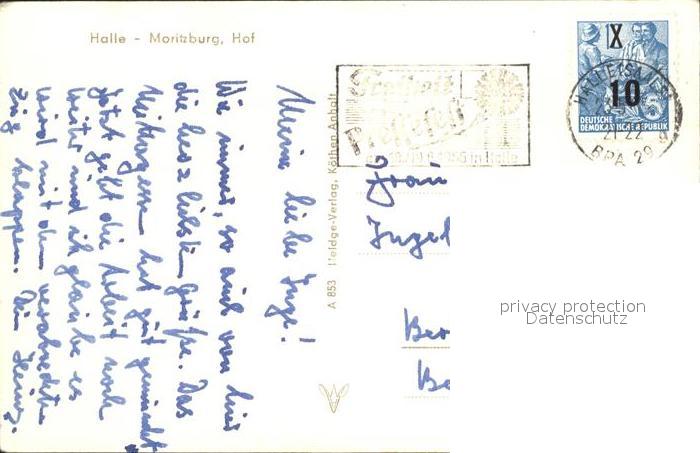 Halle - Moritzburg, Hof
Meine liebe Inge!
Wie immer, so auch von hier
die herzlichsten Grüße. Das
Mittagessen hat gut gemundet
jetzt geht die Arbeit noch
weiter und ich glaube es
wird mit dem verabredeten
Zug klappen. Dein Heinz.
A 853 Heldge-Verlag, Köthen Anhalt
Freiheit
Pressefest
1956 in Halle
X
10
DEUTSCHE
DEMOKRATISCHE REPUBLIK
HALLE (SAALE)
21-22
BPA 29
Frau
Inge
Ber
Be
privacy protection
Datenschutz